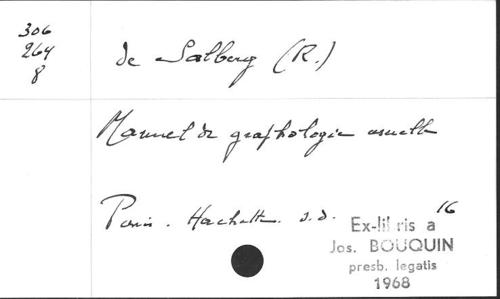 306
264
8
de Salberg (R.)
Manuel de graphologie usuelle
Paris. Hachette. s.d. 16
Ex-libris a
Jos. BOUQUIN
presb. legatis
1968